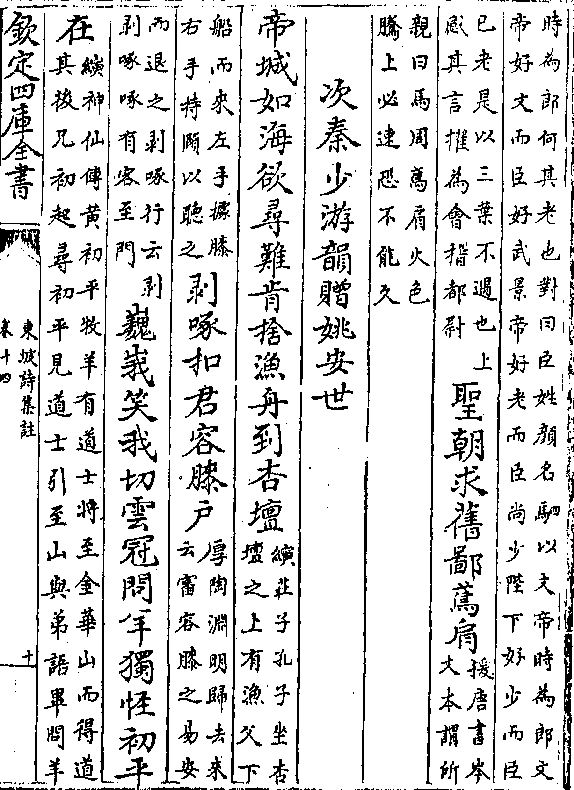 時為郎何其老也對曰臣姓顔名駟以文帝時為郎文
帝好文而臣好武景帝好老而臣尚少陛下好少而臣
已老是以三葉不遇也上
感其言擢為會稽都尉
聖朝求舊鄙鳶肩
援唐書岑
文本謂所
親曰馬周鳶肩火色
騰上必速恐不能久
次秦少游韻贈姚安世
帝城如海欲尋難肯捨漁舟到杏壇
縯莊子孔子坐杏
壇之上有漁父下
船而來左手據膝
右手持頤以聽之
剥啄扣君容膝户
厚陶淵明歸去來
云審容膝之易安
而退之剥啄行云剥
剥啄啄有客至門
巍峩笑我切雲冠問羊獨怪初平
在
縯神仙傳黄初平牧羊有道士將至金華山而得道
其後兄初起尋初平見道士引至山與弟語畢問羊
欽定四庫全書
東坡詩集註
卷十四
十